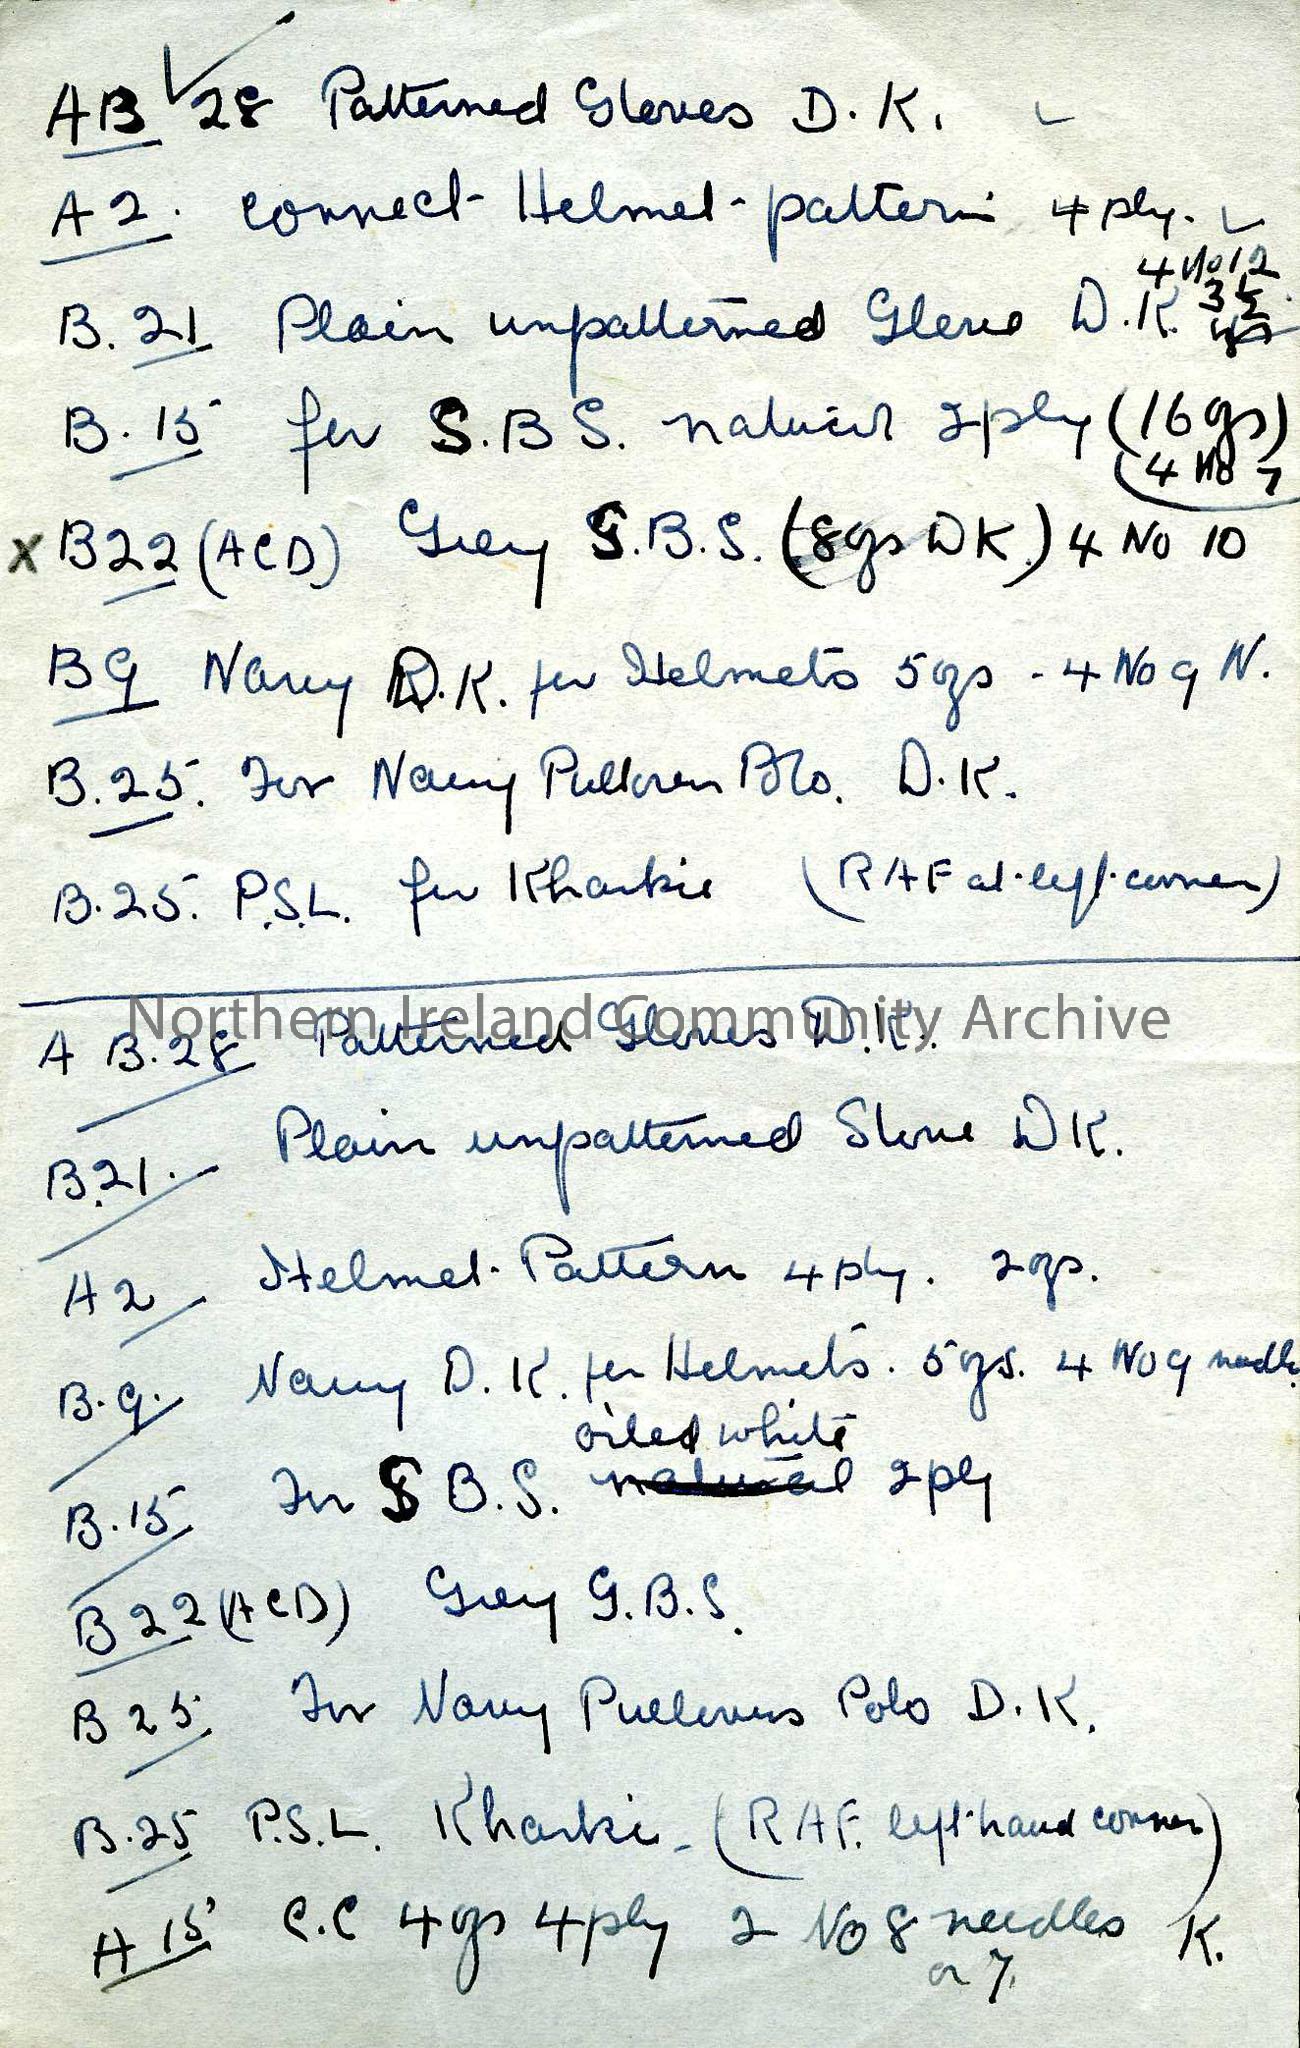 AB 28 Patterned Gloves D.K.
A2. connect Helmet pattern 4 ply.
4 No 12
B. 21 Plain unpatterned Glove D.K. 3½
B. 15 for S.B.S. natural 2ply (16 ozs)
(4 No 7
X B22 (ACD) Grey S.B.S. (8ozs DK) 4 No 10
B9 Navy D.K. for Helmets 5ozs - 4 No 9 N.
B.25. For Navy Pullover Polo. D.K.
B.25. P.S.L. for Kharkie (RAF at left corner)
Northern Ireland Community Archive
A B.28 Patterned Gloves D.K.
B.21. Plain unpatterned Glove DK.
A2 Helmet Pattern 4 ply. 2ozs.
B.9. Navy D.K. for Helmets. 5ozs. 4 No 9 needle
oiled white
B.15 For S B.S. natural 2ply
B22 (ACD) Grey G.B.S.
B25 For Navy Pullovers Polo D.K.
B.25 P.S.L. Kharkie - (RAF. left hand corner)
A 15 C.C 4ozs 4ply 2 No 8 needles K.
or 7.